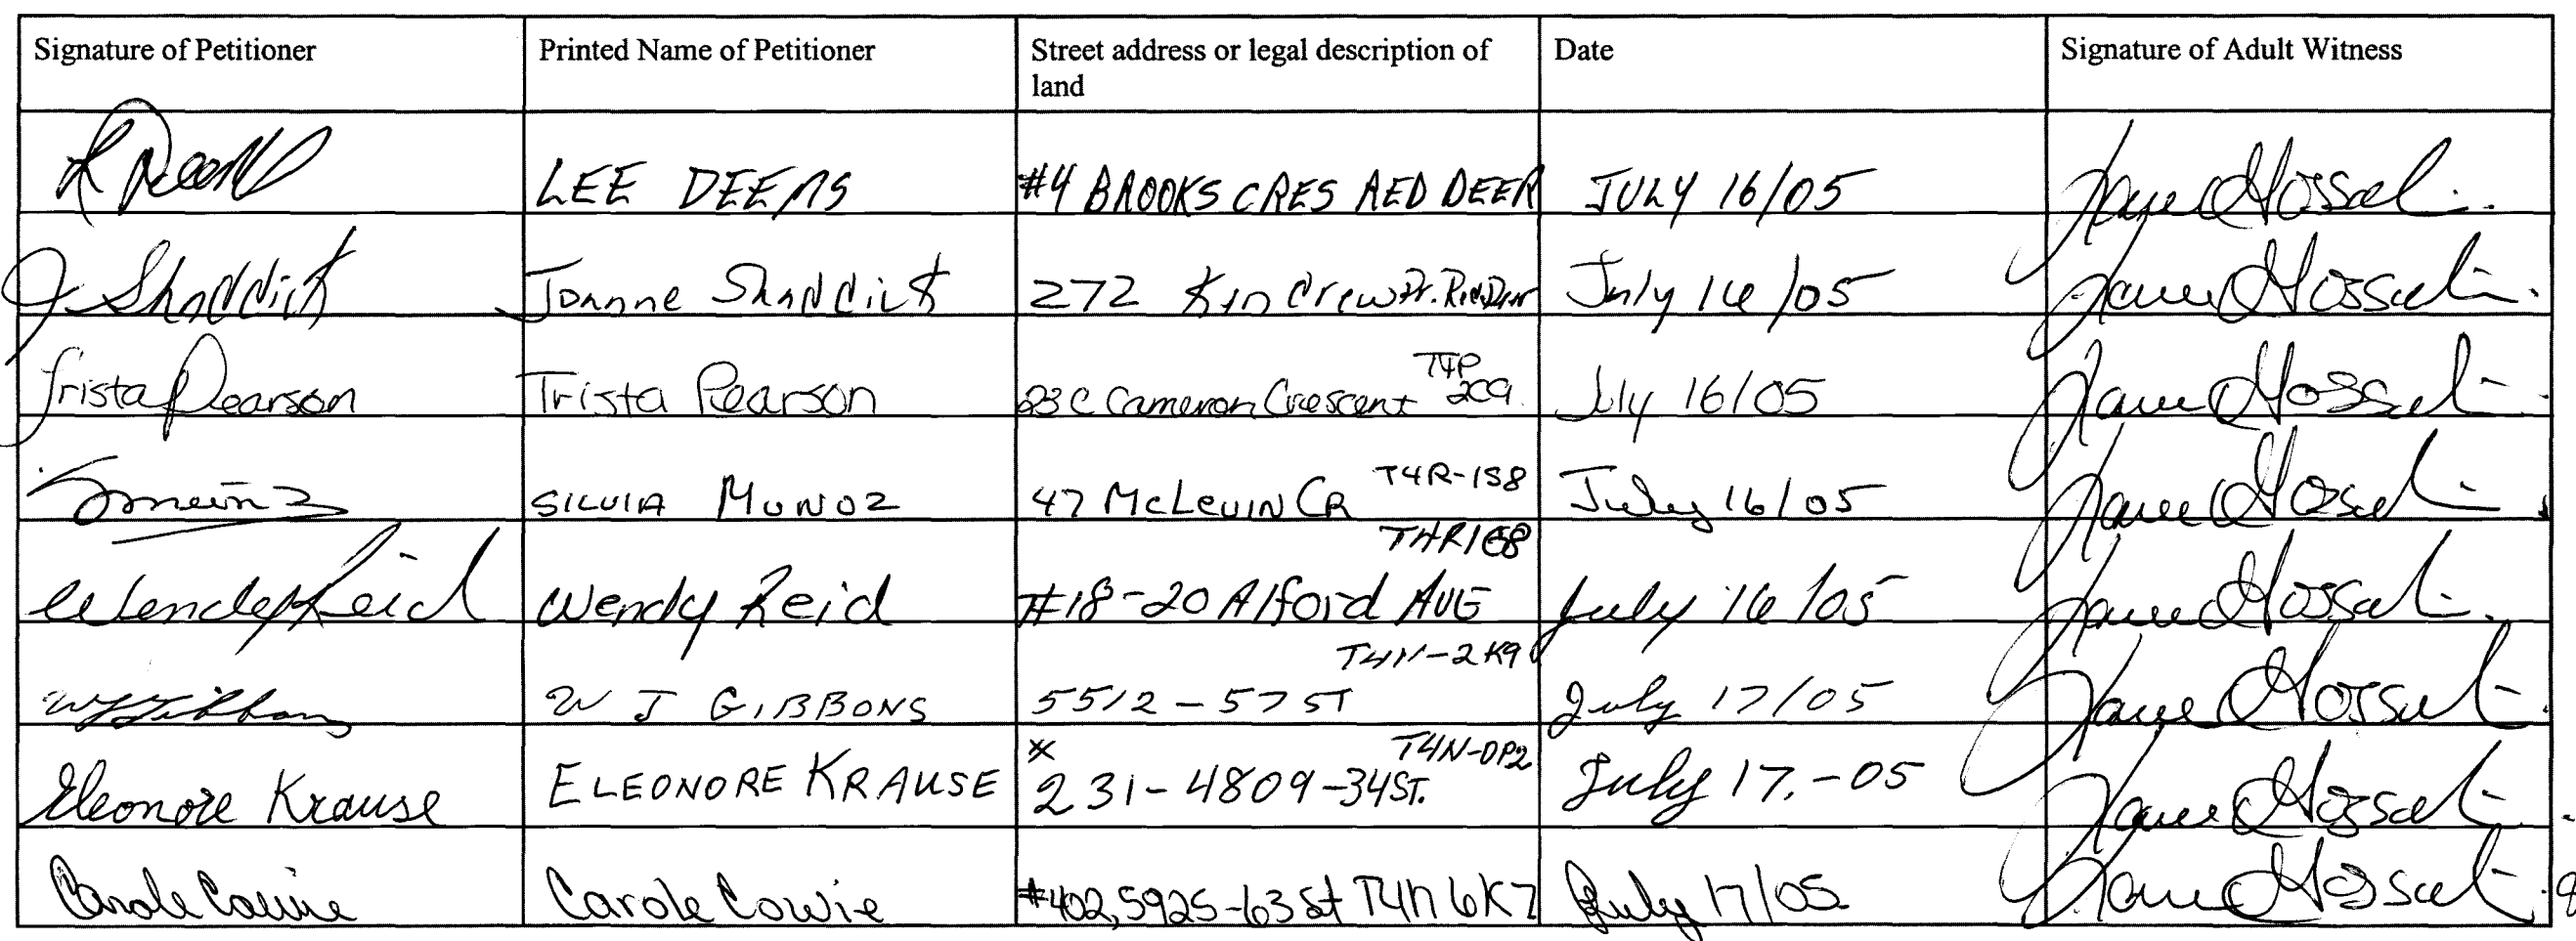 Signature of Petitioner Printed Name of Petitioner Street address or legal description of land Date Signature of Adult Witness
LEE DEEMS #4 BROOKS CRES RED DEER JULY 16/05
J. Shaddick Joanne Shaddick 272 Kendrew Dr. Red Deer July 16/05
Trista Pearson Trista Pearson 23C Cameron Crescent T4P 2C9 July 16/05
SILVIA MUNOZ 47 McLEVIN CR T4R-1S8 July 16/05
Wendy Reid Wendy Reid #18-20 Alford AVE T4R1G8 July 16/05
WJ Gibbons W J GIBBONS 5512-57 ST T4N-2K9 July 17/05
Eleonore Krause ELEONORE KRAUSE * 231-4809-34ST. T4N-0P2 July 17.-05
Carole Cowie Carole Cowie #402, 5925-63 St T4N 6K7 July 17/05